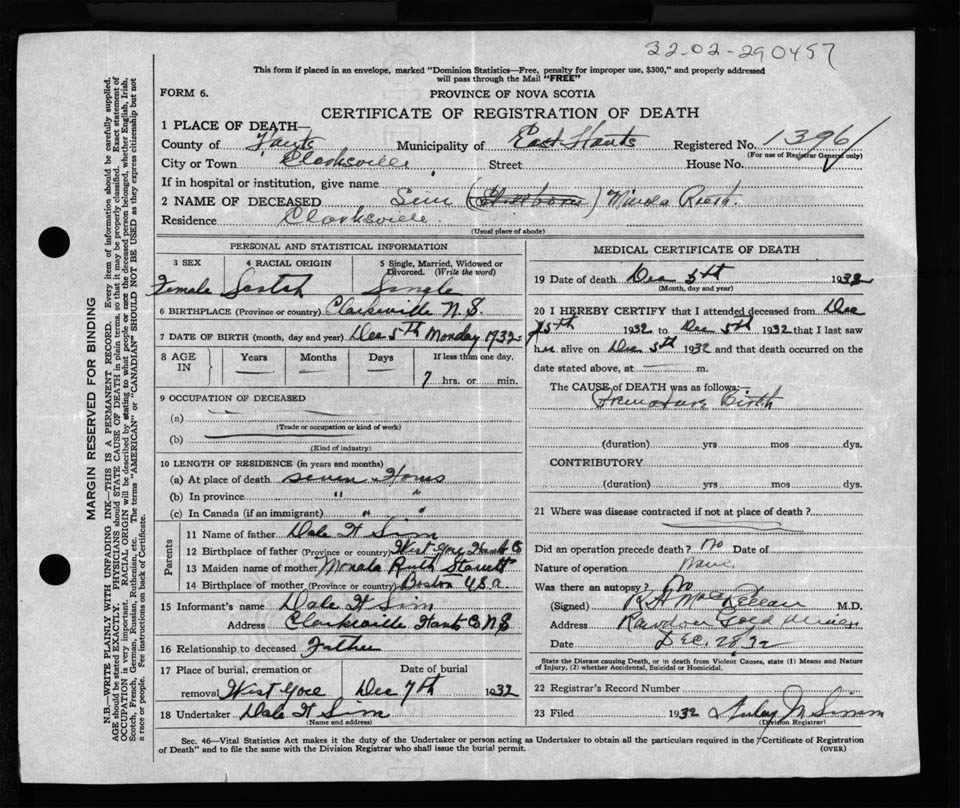 32-02-290457
This form if placed in an envelope, marked "Dominion Statistics—Free, penalty for improper use, $300," and properly addressed
will pass through the Mail "FREE"
FORM 6.
PROVINCE OF NOVA SCOTIA
CERTIFICATE OF REGISTRATION OF DEATH
1 PLACE OF DEATH—
County of Hants Municipality of East Hants Registered No. 1396
(For use of Registrar General only)
City or Town Clarksville Street House No.
If in hospital or institution, give name
2 NAME OF DECEASED Sim (Stillborn) Ruth.
Residence Clarksville.
(Usual place of abode)
PERSONAL AND STATISTICAL INFORMATION
3 SEX 4 RACIAL ORIGIN 5 Single, Married, Widowed or
Divorced. (Write the word)
Female Scotch Single
6 BIRTHPLACE (Province or country) Clarksville N.S.
7 DATE OF BIRTH (month, day and year) Dec 5th Monday 1932
8 AGE IN Years Months Days If less than one day,
7 hrs. or min.
9 OCCUPATION OF DECEASED
(a)
(Trade or occupation or kind of work)
(b)
(Kind of industry)
10 LENGTH OF RESIDENCE (in years and months)
(a) At place of death seven Hours
(b) In province " "
(c) In Canada (if an immigrant) " "
Parents
11 Name of father Dale H Sim
12 Birthplace of father (Province or country) West Gore Hants Co
13 Maiden name of mother Ruth
14 Birthplace of mother (Province or country) Boston USa
15 Informant's name Dale H Sim
Address Clarksville Hants Co N S
16 Relationship to deceased Father
17 Place of burial, cremation or Date of burial
removal West Gore Dec 7th 1932
18 Undertaker Dale H Sim
(Name and address)
MEDICAL CERTIFICATE OF DEATH
19 Date of death Dec 5th 1932
(Month, day and year)
20 I HEREBY CERTIFY that I attended deceased from Dec
5th 1932 to Dec 5th 1932 that I last saw
her alive on Dec 5th 1932 and that death occurred on the
date stated above, at m.
The CAUSE of DEATH was as follows:—
Premature Birth
(duration) yrs mos dys.
CONTRIBUTORY
(duration) yrs mos dys.
21 Where was disease contracted if not at place of death?
Did an operation precede death? No Date of
Nature of operation None
Was there an autopsy? No
(Signed) M.D.
Address Rawdon Gold Mines
Date Dec. 28/32
State the Disease causing Death, or in death from Violent Causes, state (1) Means and Nature
of Injury, (2) whether Accidental, Suicidal or Homicidal.
22 Registrar's Record Number
23 Filed 1932
(Division Registrar)
Sec. 46—Vital Statistics Act makes it the duty of the Undertaker or person acting as Undertaker to obtain all the particulars required in the Certificate of Registration
of Death" and to file the same with the Division Registrar who shall issue the burial permit.
(OVER)
MARGIN RESERVED FOR BINDING
N.B.—WRITE PLAINLY WITH UNFADING INK—THIS IS A PERMANENT RECORD. Every item of information should be carefully supplied.
AGE should be stated EXACTLY. PHYSICIANS should STATE CAUSE OF DEATH in plain terms, so that it may be properly classified. Exact statement of
OCCUPATION is very important. RACIAL ORIGIN will be described by stating to what people or race the deceased person belonged, whether English, Irish,
Scotch, French, German, Russian, Ruthenian, etc. The terms "AMERICAN" or "CANADIAN" SHOULD NOT BE USED as they express citizenship but not
a race or people. See instructions on back of Certificate.